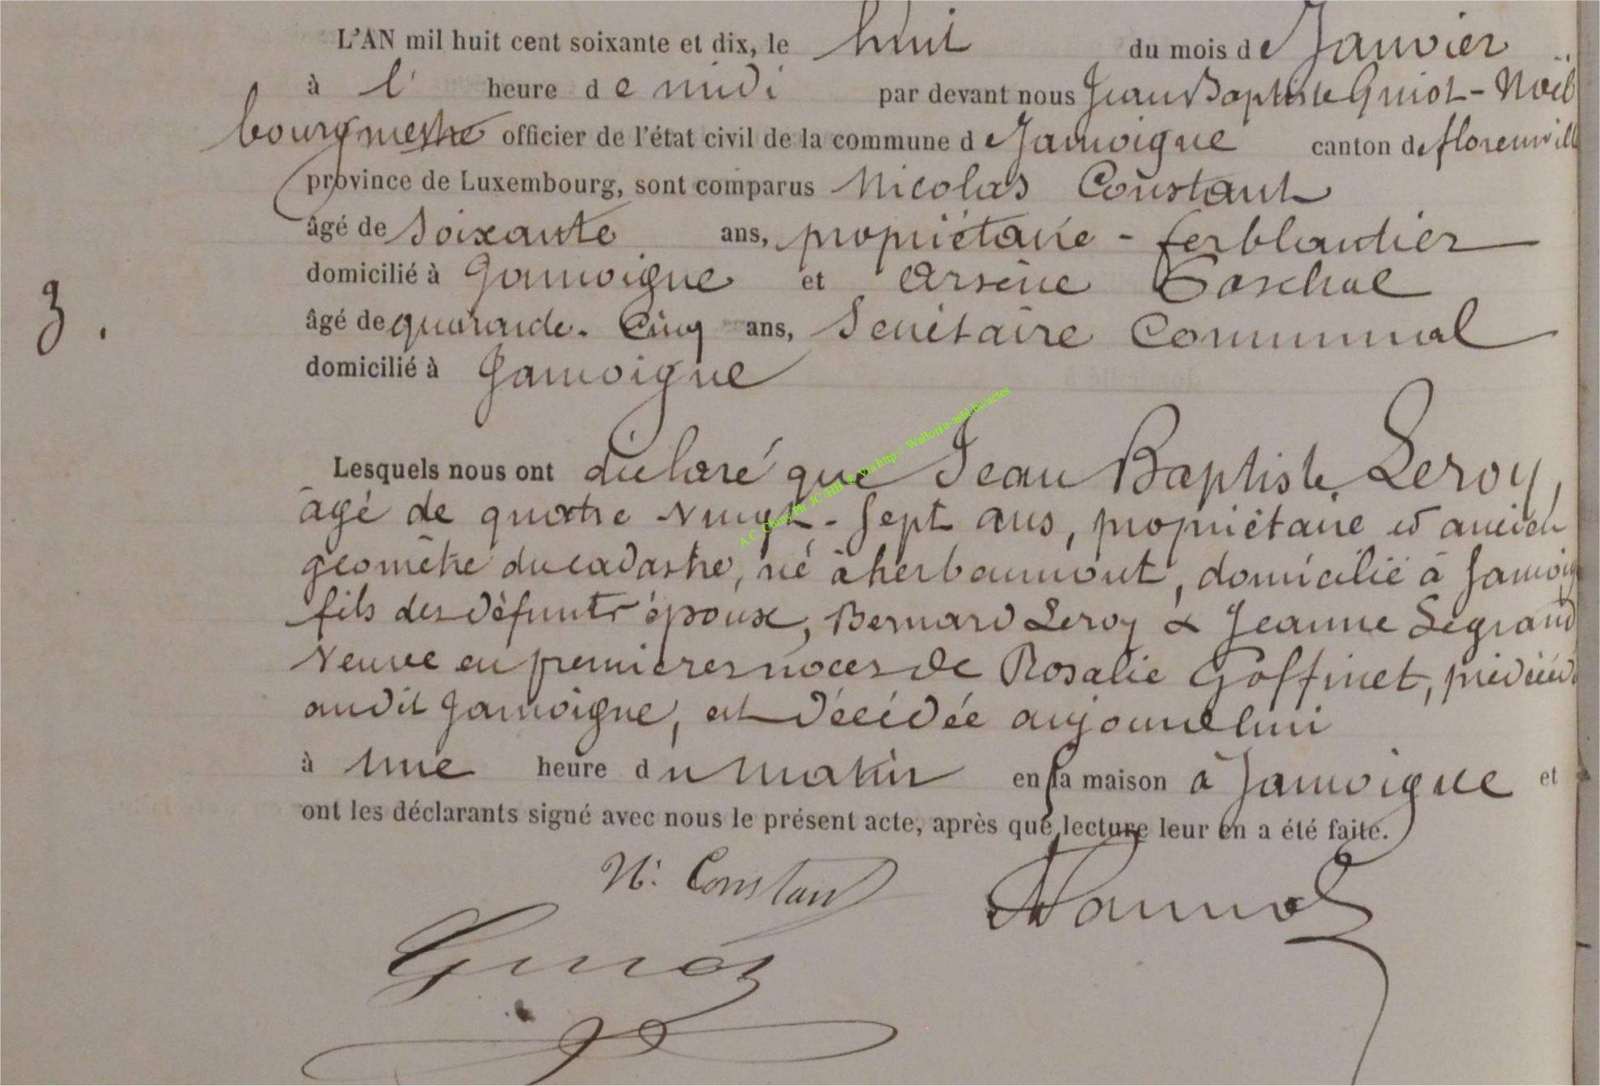 L'AN mil huit cent soixante et dix, le huit du mois de Janvier
à l' heure de midi par devant nous Jean Baptiste Guiot-Noël
bourgmestre officier de l'état civil de la commune de Jamoigne canton de florenvill
province de Luxembourg, sont comparus Nicolas Constant
âgé de soixante ans, propriétaire - ferblantier
domicilié à Jamoigne et Arsène Paschal
3. âgé de quarante-Cinq ans, Secrétaire Communal
domicilié à Jamoigne
Lesquels nous ont déclaré que Jean Baptiste Leroy,
âgé de quatre vingt-sept ans, propriétaire et ancien
géomètre du cadastre, né à herbeumont, domicilié à Jamoig
fils des défunts époux, Bernard Leroy & Jeanne Legrand
veuve en premières noces de Rosalie Goffinet, prédécéd
audit Jamoigne, est décédée aujourdhui
à une heure du matin en sa maison à Jamoigne et
ont les déclarants signé avec nous le présent acte, après que lecture leur en a été faite.
N. Constant
Guiot